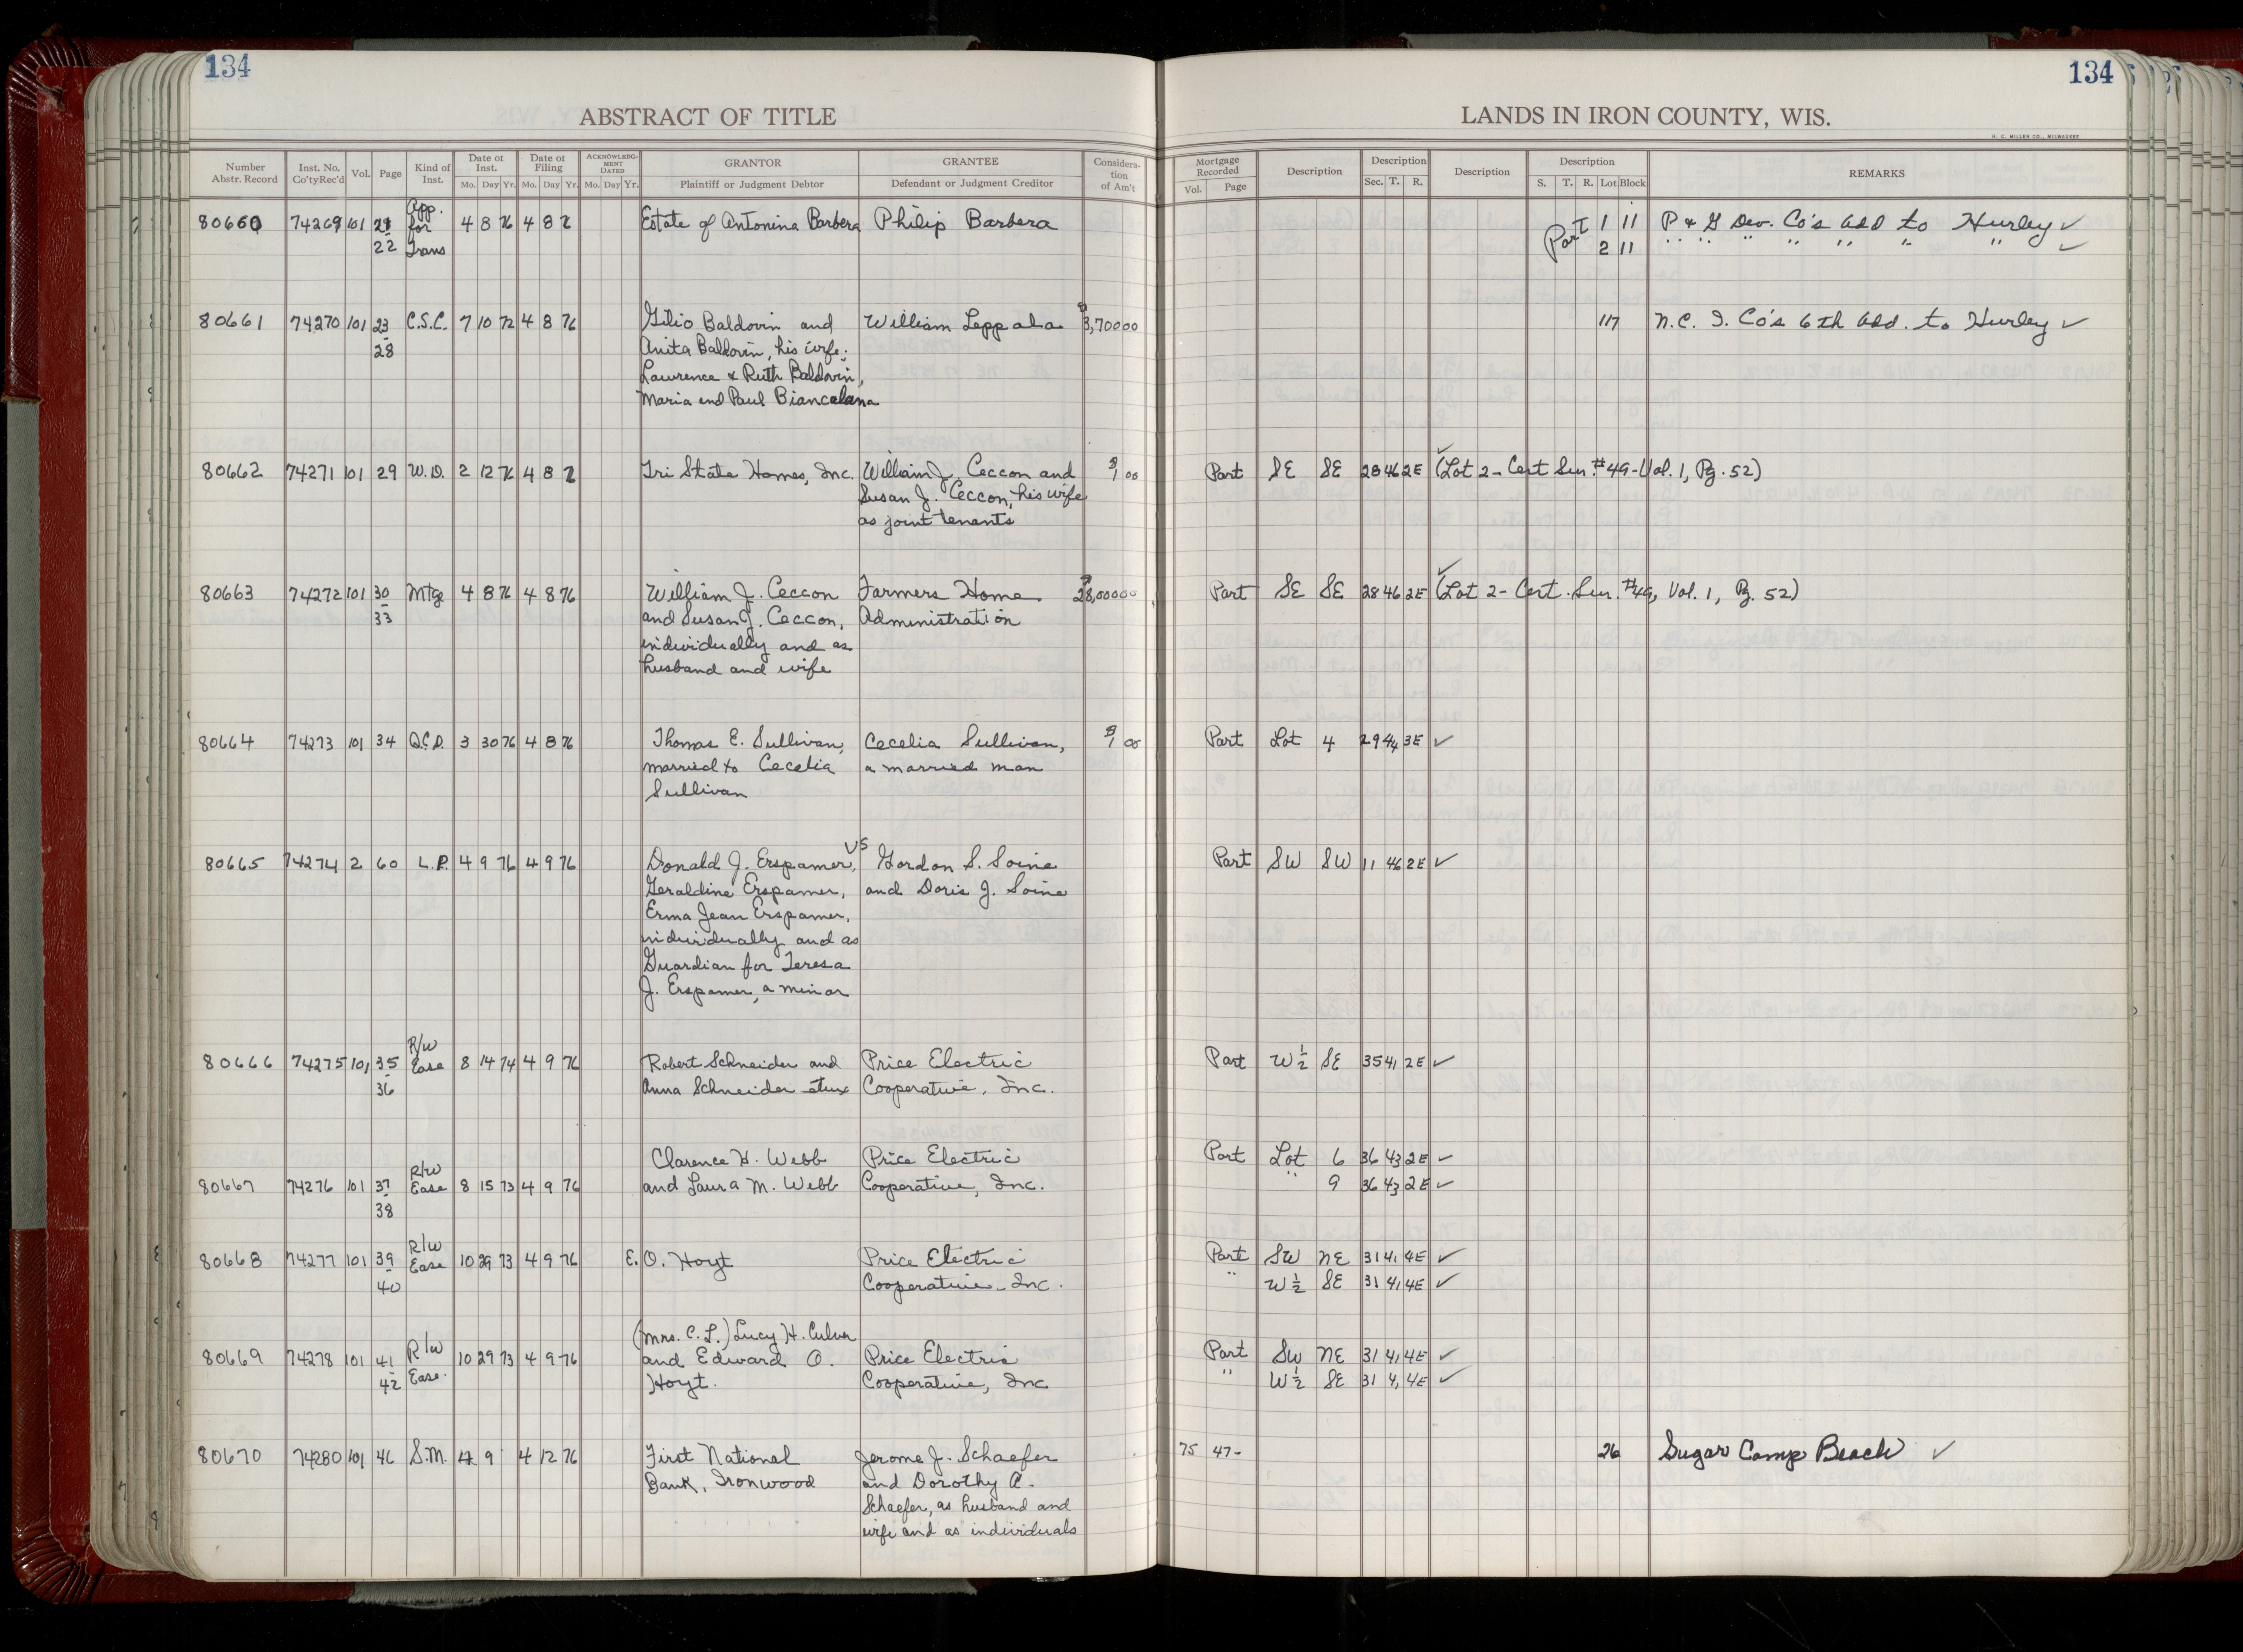 134
134
ABSTRACT OF TITLE
LANDS IN IRON COUNTY, WIS.
H. C. MILLER CO., MILWAUKEE
Number Abstr. Record | Inst. No. Co'ty Rec'd | Vol. | Page | Kind of Inst. | Date of Inst. Mo. Day Yr. | Date of Filing Mo. Day Yr. | ACKNOWLEDGMENT DATED Mo. Day Yr. | GRANTOR Plaintiff or Judgment Debtor | GRANTEE Defendant or Judgment Creditor | Consideration of Am't | Mortgage Recorded Vol. Page | Description | Description Sec. T. R. | Description | Description S. T. R. Lot Block | REMARKS
App.
80660 74269 101 21 for 4 8 76 4 8 7 Estate of Antonina Barbera Philip Barbera Part 1 11 P & G Dev. Co's add to Hurley ✓
22 Trans 2 11 " " " " " " " ✓
80661 74270 101 23 C.S.C. 7 10 72 4 8 76 Gilio Baldovin and William Leppala $3,700 00 117 N.C. I. Co's 6th add. to Hurley ✓
28 Anita Baldovin, his wife;
Lawrence & Ruth Baldovin,
Maria and Paul Biancalana
80662 74271 101 29 W.D. 2 12 76 4 8 7 Tri State Homes, Inc. William J. Ceccon and $1 00 Part SE SE 28 46 2E ✓ (Lot 2 - Cert Sur. #49 - Vol. 1, Pg. 52)
Susan J. Ceccon, his wife
as joint tenants
80663 74272 101 30 Mtge 4 8 76 4 8 76 William J. Ceccon Farmers Home $28,000 00 Part SE SE 28 46 2E ✓ (Lot 2 - Cert. Sur. #49, Vol. 1, Pg. 52)
33 and Susan J. Ceccon, Administration
individually and as
husband and wife
80664 74273 101 34 Q.C.D. 3 30 76 4 8 76 Thomas E. Sullivan, Cecelia Sullivan, $1 00 Part Lot 4 29 44 3E ✓
married to Cecelia a married man
Sullivan
80665 74274 2 60 L.P. 4 9 76 4 9 76 Donald J. Erspamer, vs Gordon S. Soine Part SW SW 11 46 2E ✓
Geraldine Erspamer, and Doris J. Soine
Erma Jean Erspamer,
individually and as
Guardian for Teresa
J. Erspamer, a minor
R/W
80666 74275 101 35 Ease 8 14 74 4 9 76 Robert Schneider and Price Electric Part W½ SE 35 41 2E ✓
36 Anna Schneider etux Cooperative, Inc.
Clarence H. Webb Price Electric Part Lot 6 36 43 2E ✓
R/W
80667 74276 101 37 Ease 8 15 73 4 9 76 and Laura M. Webb Cooperative, Inc. " 9 36 43 2E ✓
38
R/W
80668 74277 101 39 Ease 10 29 73 4 9 76 E. O. Hoyt Price Electric Part SW NE 31 41 4E ✓
40 Cooperative, Inc. " W½ SE 31 41 4E ✓
(Mrs. C. L.) Lucy H. Culver
80669 74278 101 41 R/W 10 29 73 4 9 76 and Edward O. Price Electric Part SW NE 31 41 4E ✓
42 Ease. Hoyt. Cooperative, Inc " W½ SE 31 41 4E ✓
80670 74280 101 46 S.M. 4 9 4 12 76 First National Jerome J. Schaefer 75 47- 26 Sugar Camp Beach ✓
Bank, Ironwood and Dorothy A.
Schaefer, as husband and
wife and as individuals